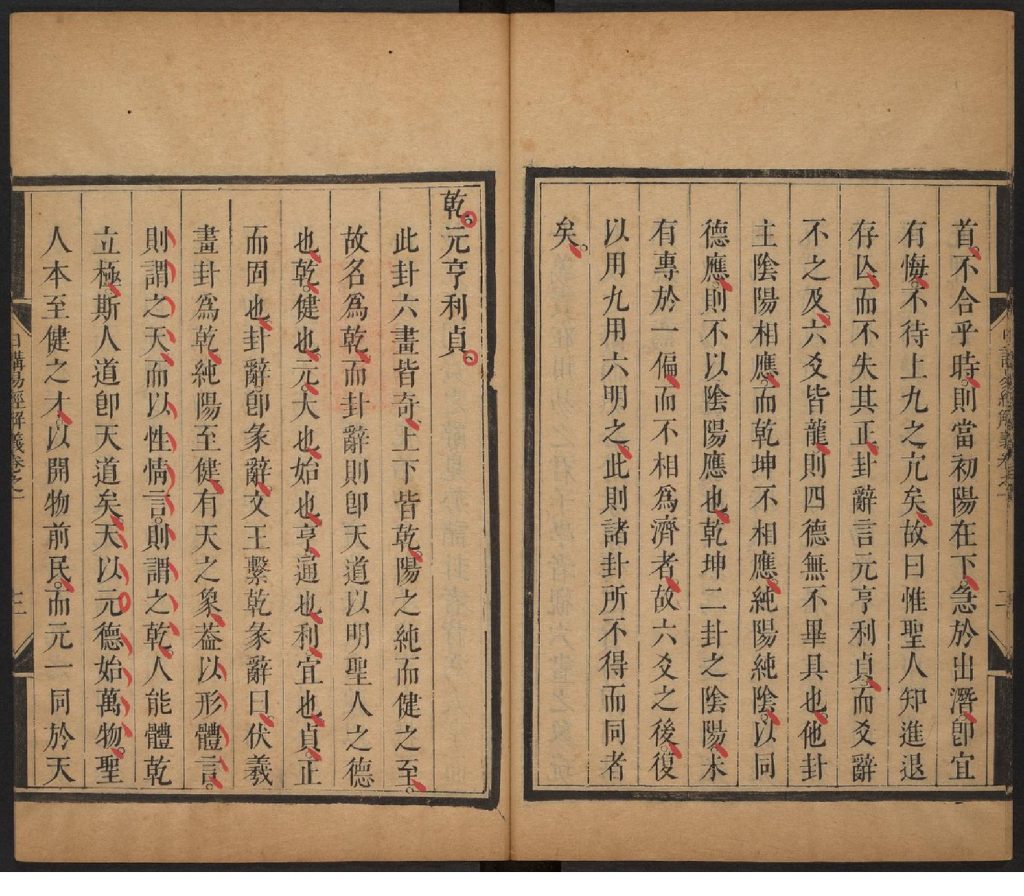 首不合乎時則當初陽在下急於出潛卽宜
有悔不待上九之亢矣故曰惟聖人知進退
存亾而不失其正卦辭言元亨利貞而爻辭
不之及六爻皆龍則四德無不畢具也他卦
主陰陽相應而乾坤不相應純陽純陰以同
德應則不以陰陽應也乾坤二卦之陰陽未
有專於一偏而不相爲濟者故六爻之後復
以用九用六明之此則諸卦所不得而同者
矣
乾元亨利貞
此卦六畫皆奇上下皆乾陽之純而健之至
故名爲乾而卦辭則卽天道以明聖人之德
也乾健也元大也始也亨通也利宜也貞正
而固也卦辭卽彖辭文王繫乾彖辭曰伏羲
畫卦爲乾純陽至健有天之象葢以形體言
則謂之天而以性情言則謂之乾人能體乾
立極斯人道卽天道矣天以元德始萬物聖
人本至健之才以開物前民而元一同於天
日講易經解義卷之一